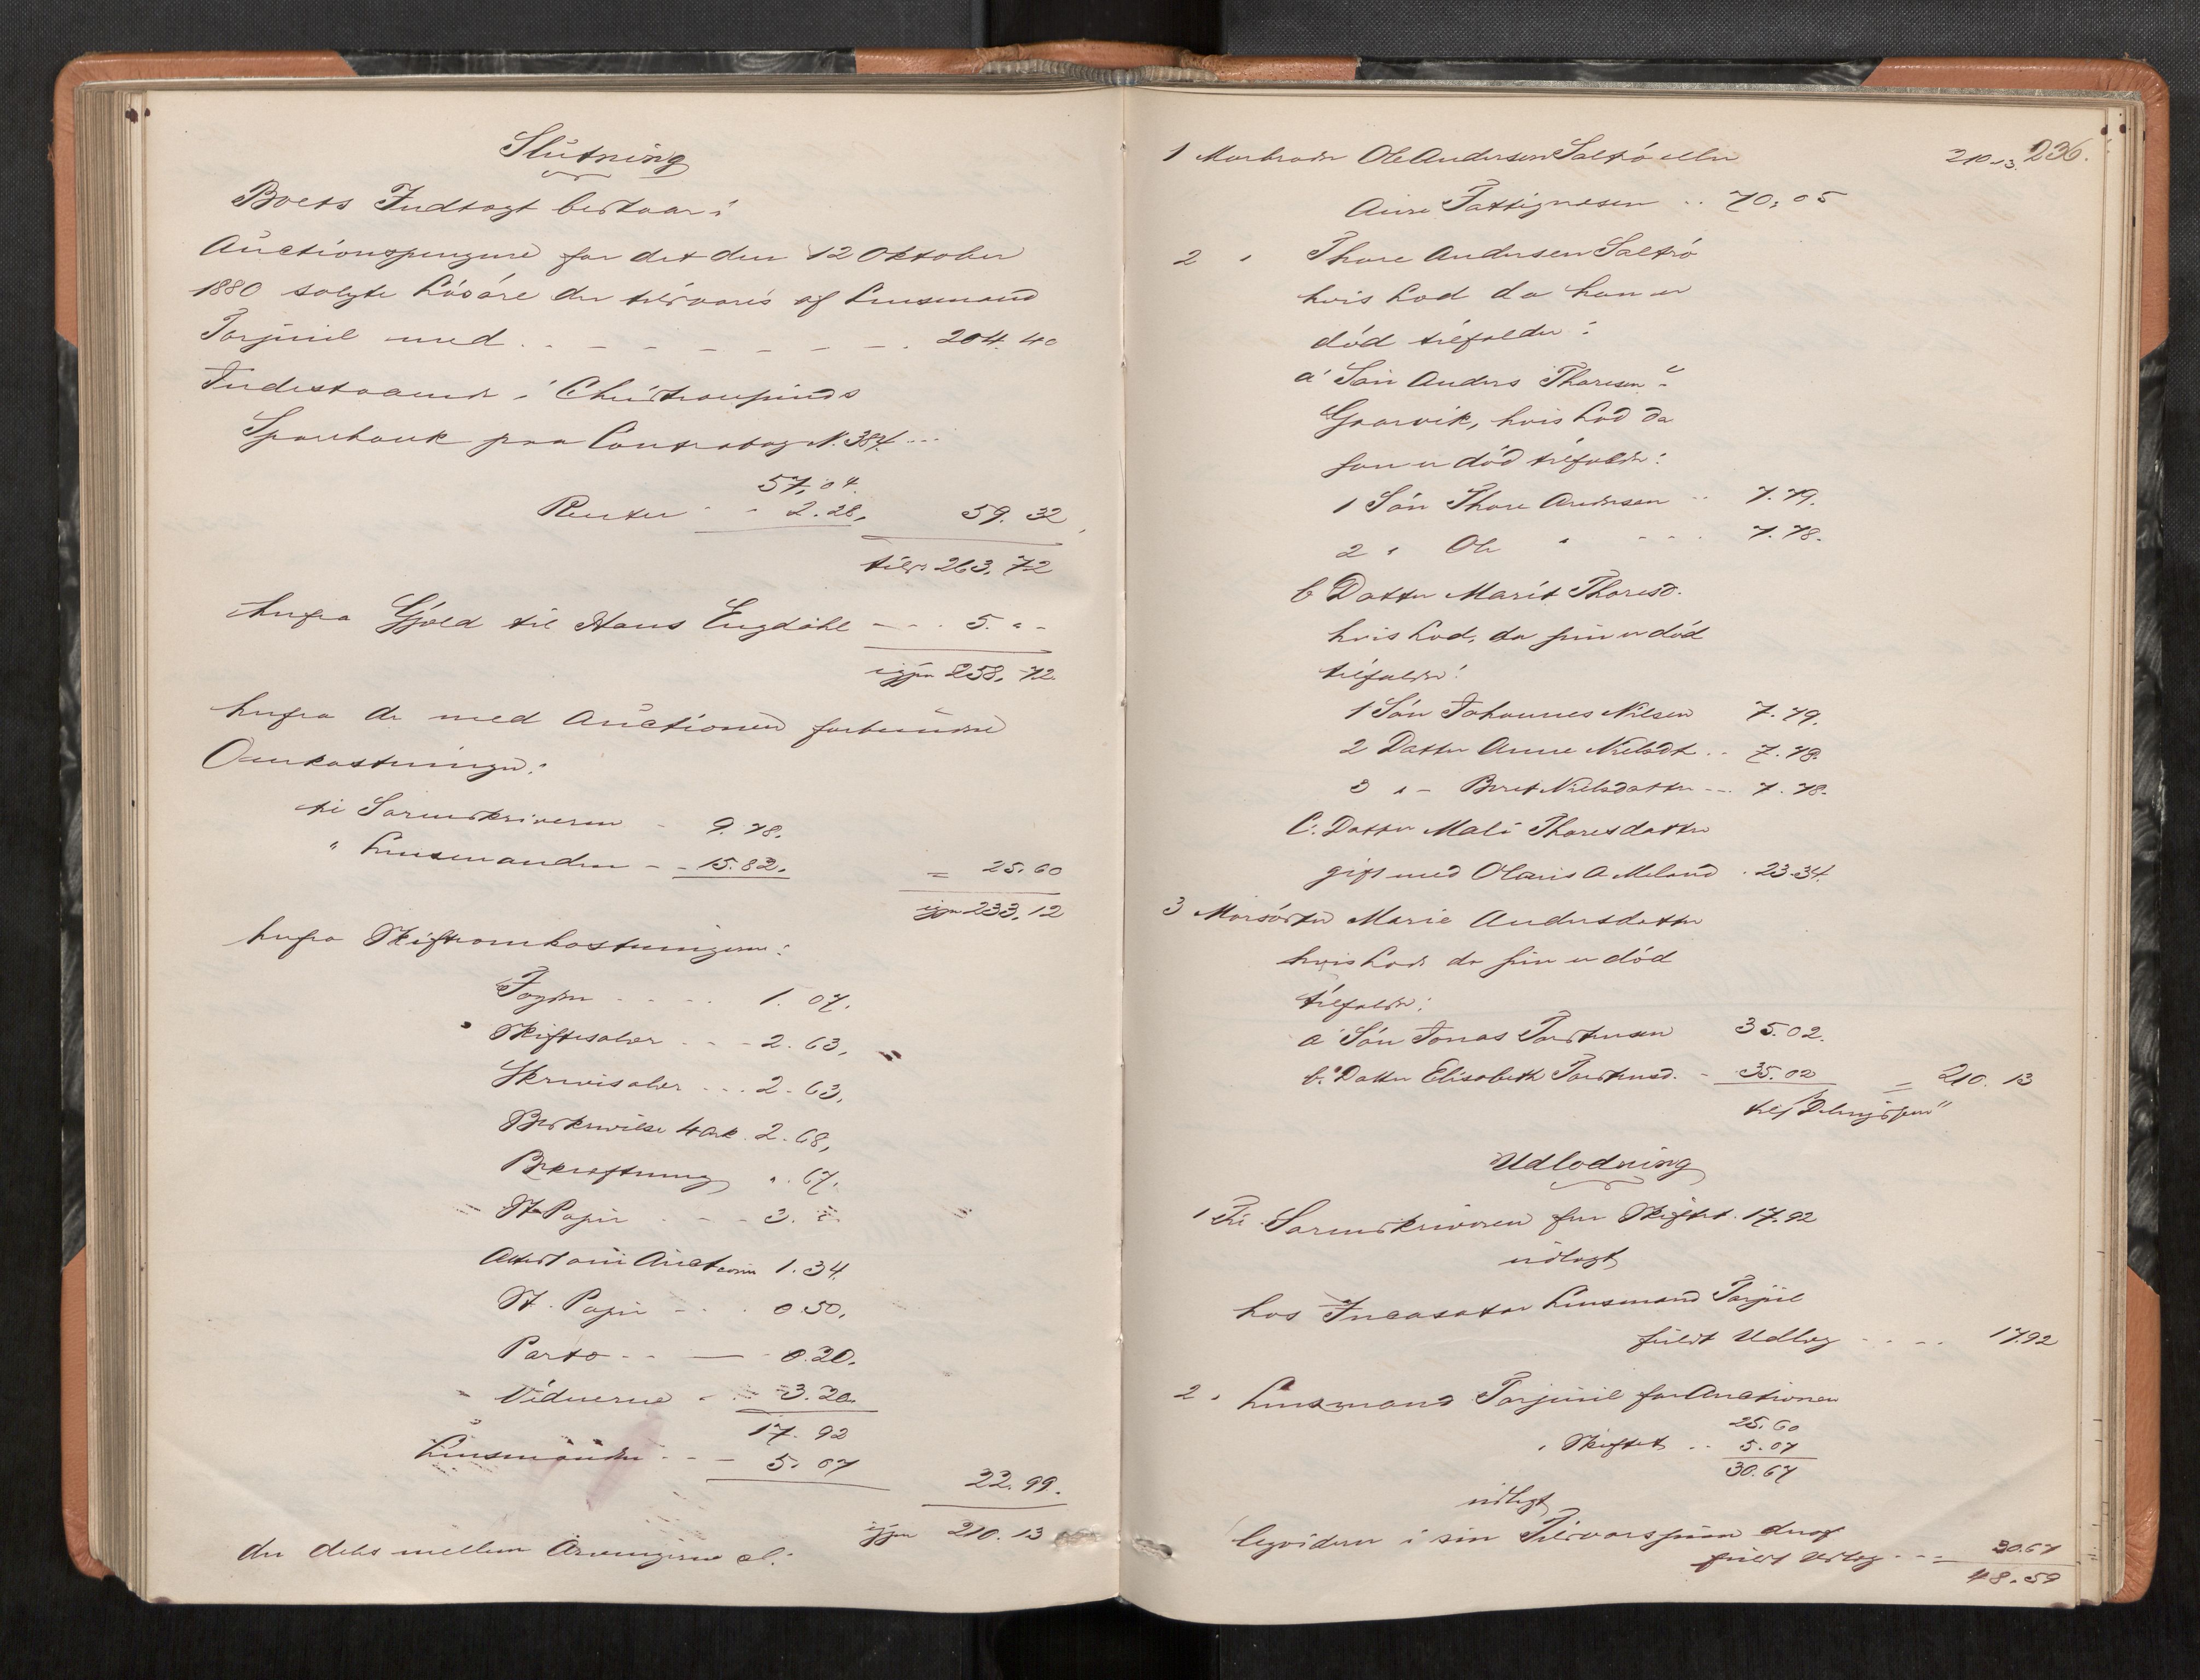 Slutning
Boets Indtægt bestaar i
Auctionspengene for det den 12 Oktober
1880 solgte Løsøre der tilsvares af Lensmand
Tarjuul med . . 204. 40
Indestaaende i Christiansunds
Sparebank paa Contrabog N. 384 ...
57,04.
Renter - - 2.28, 59. 32
tils. 263, 72
herfra Gjæld til Hans Engdahl - - - 5. " -
igjen 258, 72.
herfra de med Auctionen forbundne
Omkostninger:
til Sorenskriveren - 9.78.
" Lensmanden - - 15.82. = 25.60
igjen 233,12
herfra Skifteomkostningerne:
Fogden - - - - 1. 07.
Skiftesalær - - - 2. 63,
Skriversalær - - - 2. 63,
Beskrivelse 4 Ark. 2. 68,
Bekræftning " . 67.
St. Papir - - - 3. "
Attest om Auctionen 1. 34.
St. Papir - - - 0.50.
Porto - - — - 0.20.
Vidnerne - - 3.20.
17. 92
Lensmanden - - - 5. 07 22. 99.
igjen 210. 13
der deles mellem Arvingerne al:
236.
1 Morbroder Ole Andersen Saltrø eller 210.13.
. . 70,05
2 " Thore Andersen Saltrø
hvis Lod da han er
død tilfalder:
a Søn Anders Thoresen
hvis Lod da
han er død tilfalder:
1 Søn Thore Andersen - - 7.79.
2 " Ole " - - - 7.78.
b Datter Marit Thoresd.
hvis Lod, da hun er død
tilfalder:
1 Søn Johannes Nilsen 7.79.
2 Datter Anne Nielsdt. . 7.78.
3 " - Beret Nielsdatter - - - 7.78.
C. Datter Mali Thoresdatter
gift med Olaus A. Meland . 23.34.
3 Morsøster Marie Andersdatter
hvis Lod da hun er død
tilfalder:
a Søn Jonas 35.02.
b. Datter Elisabeth - 35.02 = 210. 13
Udlodning
1 Til Sorenskriveren for Skiftet. 17.92
udlagt
hos Incassator Lensmand Tarjuul
fuldt Udlæg - - - - 17.92
2 " Lensmand Tarjuul for Auctionen
25.60
" Skiftet . . 5.07
30.67
udlagt
liqvideres i sin Tilsvarssum deraf
fuldt Udlæg - - = 30.67
48.59